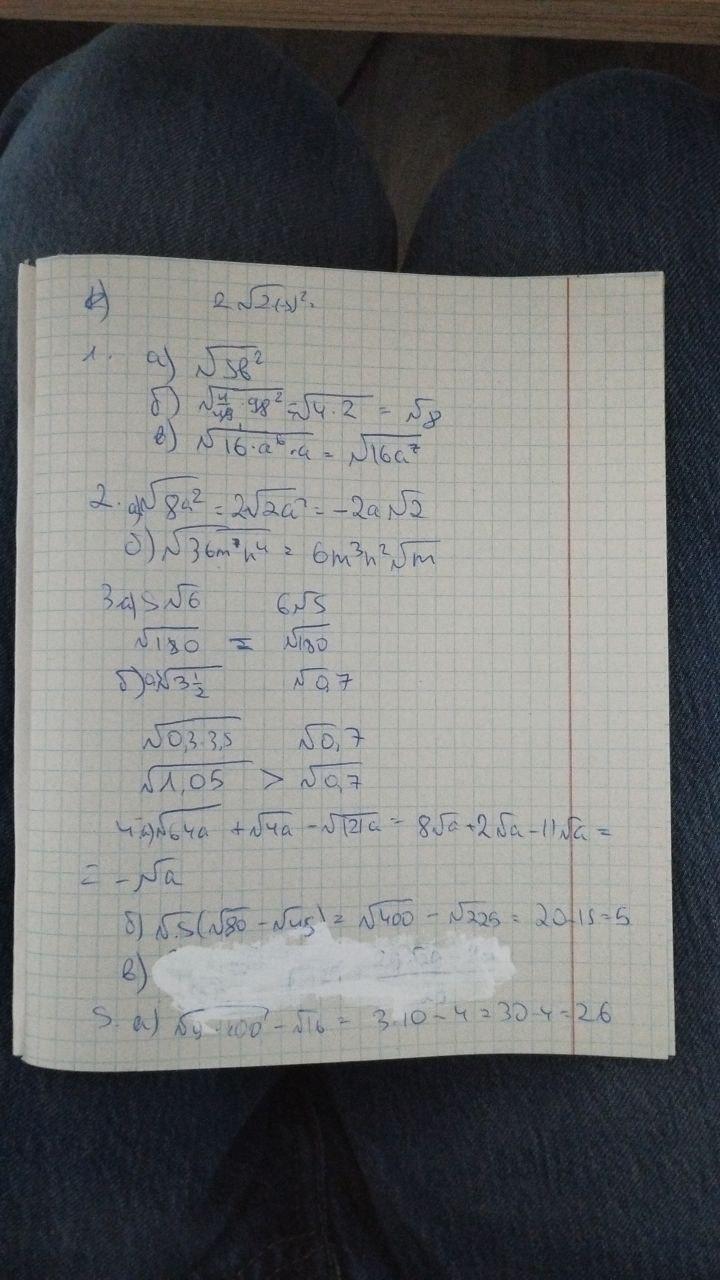 2√2(-)² =
1. а) √3в²
б) √4/49 · 98² = √4 · 2 = √8
в) √16 · a⁶ · a = √16a⁷
2. а) √8a² = 2√2a² = -2a√2
б) √36m⁷n⁴ = 6m³n²√m
3 а) 5√6 6√5
√180 = √180
б) √3 1/2 √0,7
√0,3·3,5 √0,7
√1,05 > √0,7
4 а) √64a + √4a - √121a = 8√a + 2√a - 11√a =
= -√a
б) √5(√80 - √45) = √400 - √225 = 20-15=5
в)
5. а) √9·100 - √16 = 3·10-4=30-4=26